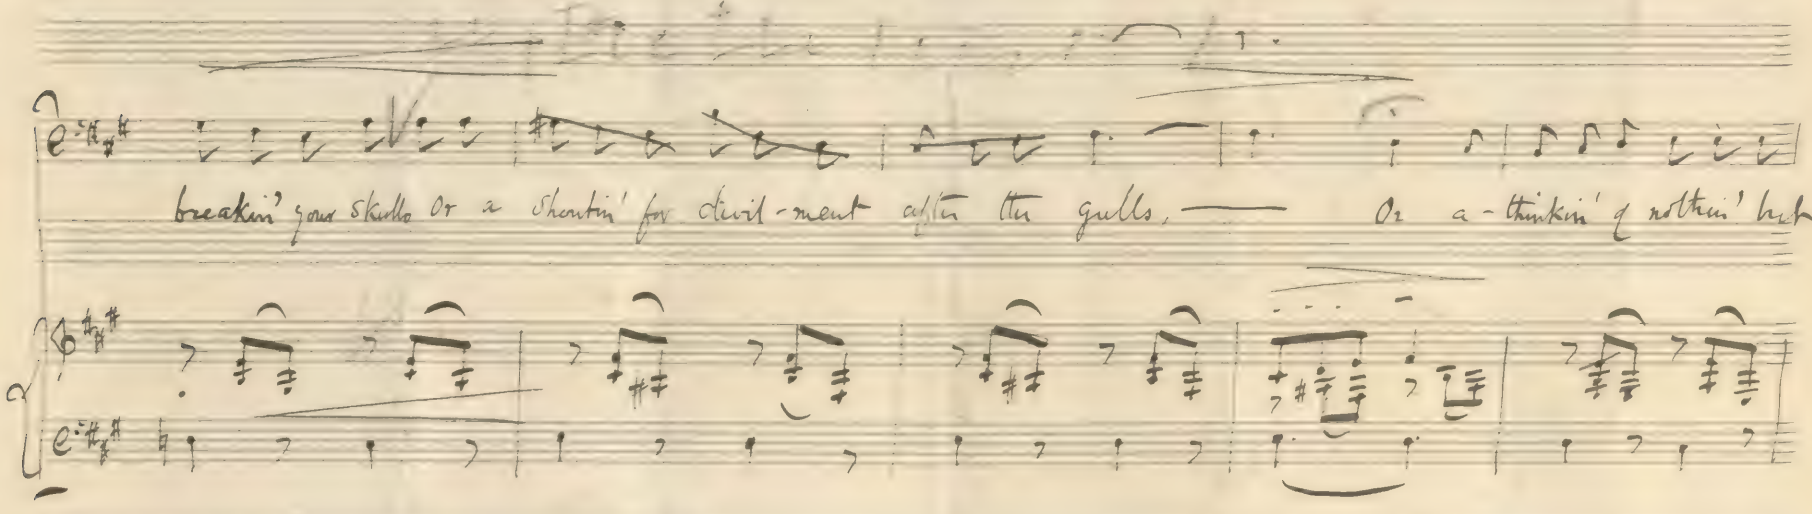 breakin' your skulls Or a shoutin' for divil-ment after the gulls, Or a-thinkin' o nothin' but